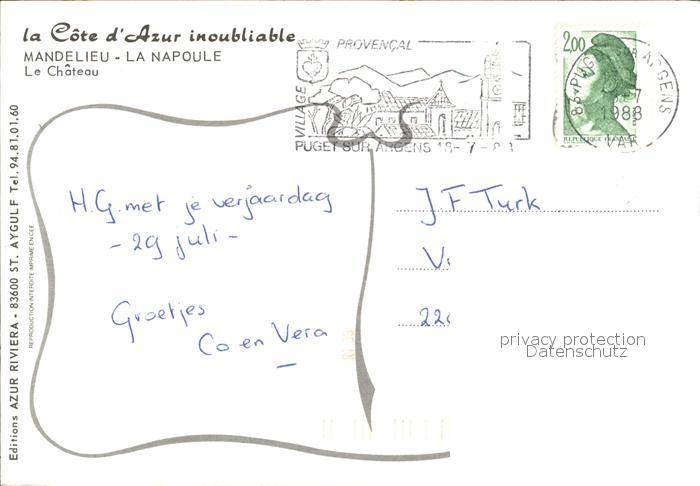 la Côte d'Azur inoubliable
MANDELIEU - LA NAPOULE
Le Château
VILLAGE
PROVENÇAL
PUGET SUR ARGENS
2,00
REPUBLIQUE FRANÇAISE
ARGENS
1988
VAR
H.G. met je verjaardag
- 29 juli -
Groetjes
Co en Vera
J.F Turk
privacy protection
Datenschutz
Editions AZUR RIVIERA - 83600 ST. AYGULF Tel. 94.81.01.60
REPRODUCTION INTERDITE IMPRIME EN CEE